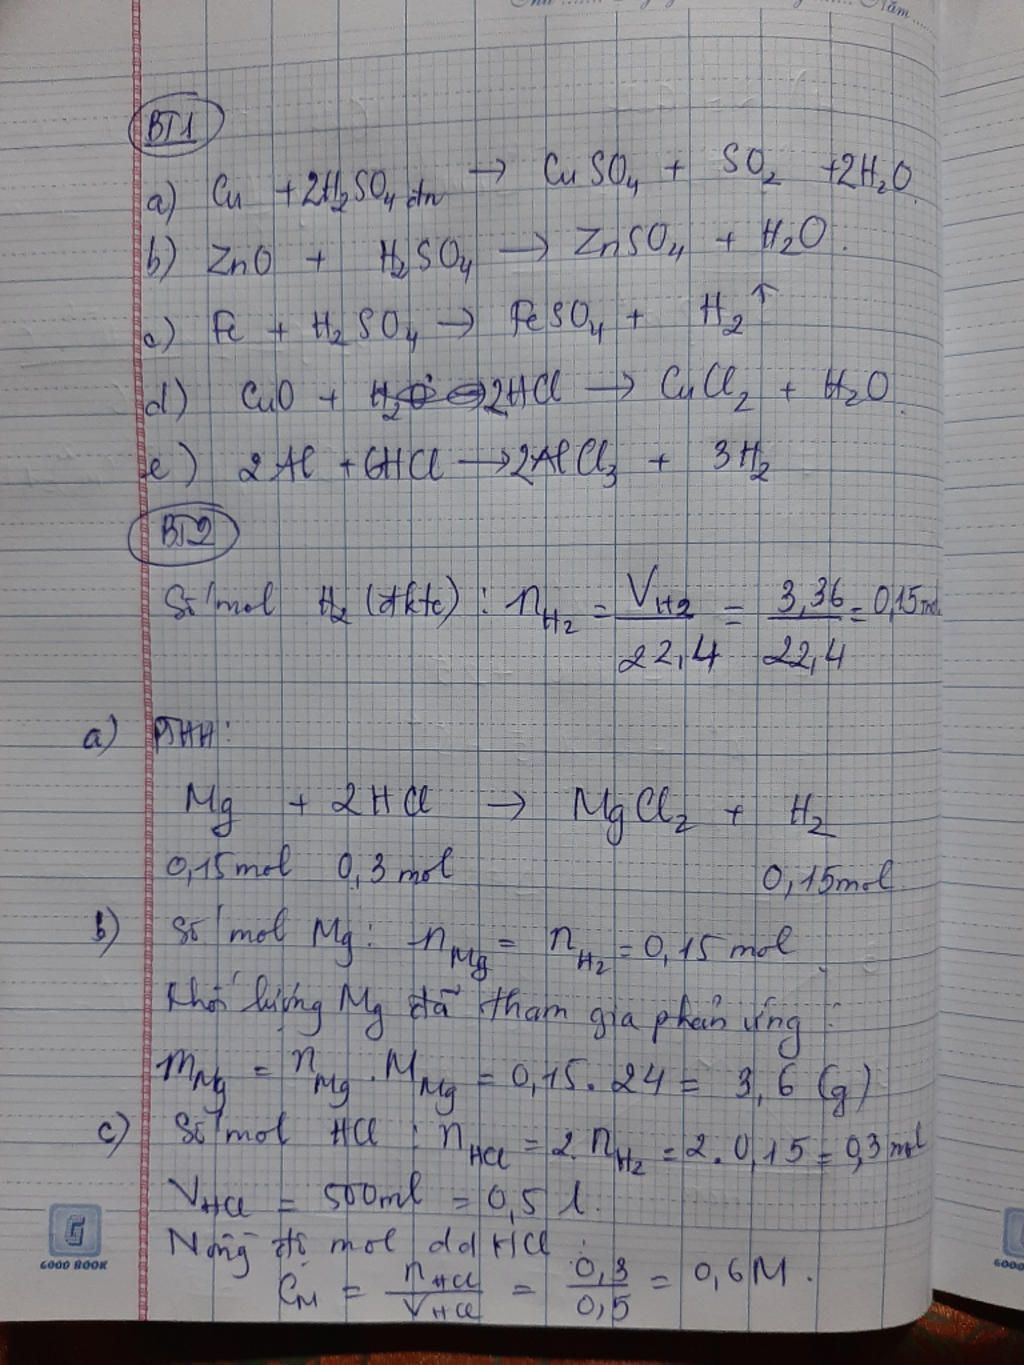 Năm
BT1
a) Cu + 2H₂SO₄ đn → CuSO₄ + SO₂ + 2H₂O
b) ZnO + H₂SO₄ → ZnSO₄ + H₂O.
c) Fe + H₂SO₄ → FeSO₄ + H₂↑
d) CuO + 2HCl → CuCl₂ + H₂O
e) 2Al + 6HCl → 2AlCl₃ + 3H₂
BT2
Số mol H₂ (đktc): n_H₂ = V_H₂/22,4 = 3,36/22,4 = 0,15 mol
a) PTHH:
Mg + 2HCl → MgCl₂ + H₂
0,15mol 0,3mol 0,15mol
b) Số mol Mg: n_Mg = n_H₂ = 0,15 mol
Khối lượng Mg đã tham gia phản ứng:
m_Mg = n_Mg.M_Mg = 0,15.24 = 3,6 (g)
c) Số mol HCl: n_HCl = 2.n_H₂ = 2.0,15 = 0,3 mol
V_HCl = 500ml = 0,5 l.
Nồng độ mol dd HCl:
C_M = n_HCl/V_HCl = 0,3/0,5 = 0,6M.
G
GOOD BOOK